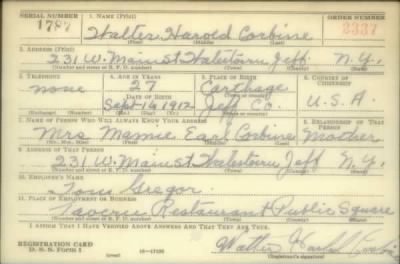 SERIAL NUMBER 1. NAME (Print) ORDER NUMBER
1787 Walter Harold Corbine 2337
(First) (Middle) (Last)
2. ADDRESS (Print)
231 W. Main St Watertown Jeff. N.Y.
(Number and street or R. F. D. number) (Town) (County) (State)
3. TELEPHONE 4. AGE IN YEARS 5. PLACE OF BIRTH 6. COUNTRY OF CITIZENSHIP
none 27 Carthage
DATE OF BIRTH
Sept. 16 1912 Jeff. Co. U.S.A.
7. NAME OF PERSON WHO WILL ALWAYS KNOW YOUR ADDRESS 8. RELATIONSHIP OF THAT PERSON
Mrs Mamie Earl Corbine Mother
9. ADDRESS OF THAT PERSON
231 W. Main St. Watertown Jeff N.Y.
(Number and street or R. F. D. number) (Town) (County) (State)
10. EMPLOYER'S NAME
Gregor
11. PLACE OF EMPLOYMENT OR BUSINESS
Restaurant Public Square
(Number and street or R. F. D. number) (Town) (County) (State)
I AFFIRM THAT I HAVE VERIFIED ABOVE ANSWERS AND THAT THEY ARE TRUE.
REGISTRATION CARD
D. S. S. Form 1
Walter Harold Corbin
(Registrant's signature)